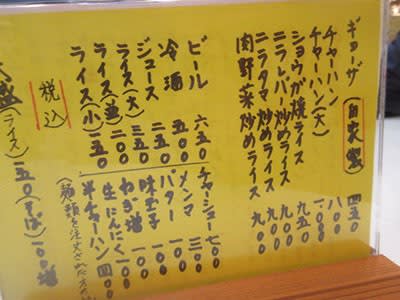 ギョーザ(自家製) 四五〇
チャーハン 八〇〇
チャーハン(大) 一、〇〇〇
ショウガ焼ライス 九五〇
ニラレバー炒めライス 九〇〇
ニラタマ炒めライス 九〇〇
肉野菜炒めライス 九〇〇
ビール 六五〇
冷酒 五〇〇
ジュース 一五〇
ライス(大) 三〇〇
ライス(並) 二〇〇
ライス(小) 一五〇
チャーシュー 七〇〇
メンマ 三〇〇
バター 一〇〇
味玉子 一〇〇
ねぎ増 一〇〇
生にんにく 一〇〇
半チャーハン 四〇〇
(麺類を注文された方のみ
税込
大盛(ライス)一五〇(そば)一〇〇増